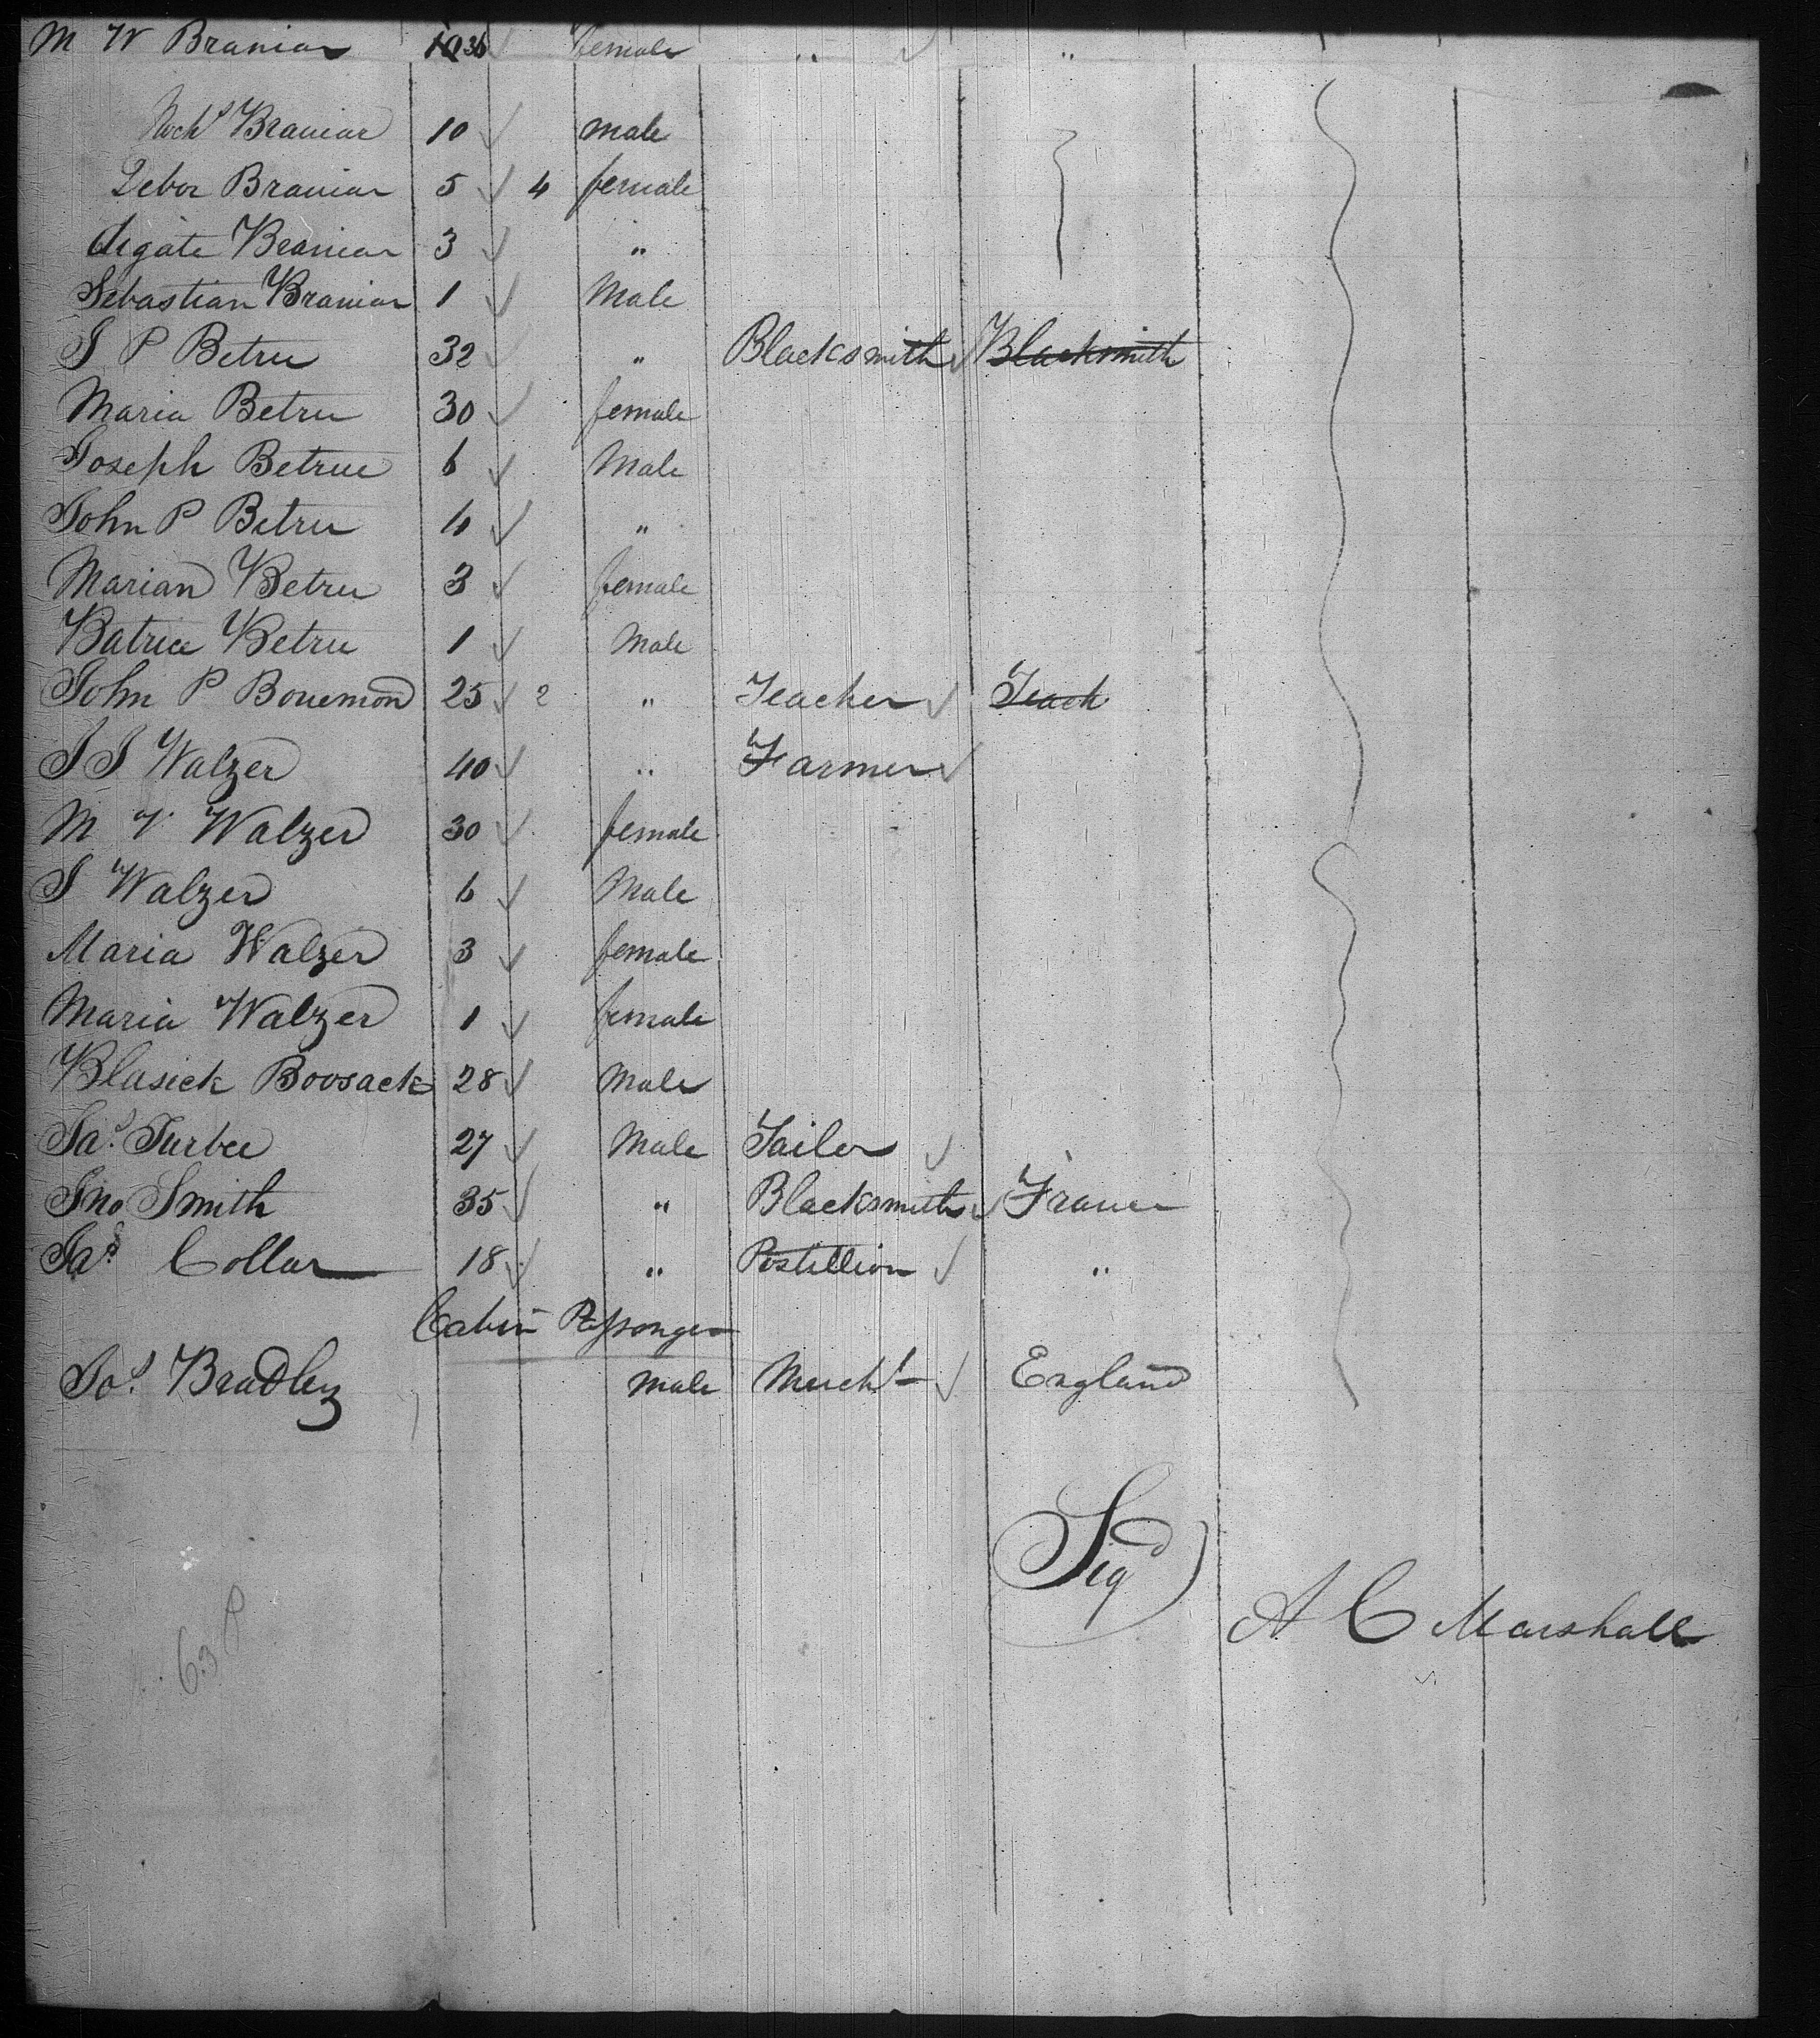 M W Braniar 36 female " "
Noch^s Braniar 10 male
Debor Braniar 5 4 female
Argate Braniar 3 "
Sebastian Braniar 1 Male
J P Betru 32 " Blacksmith Blacksmith
Maria Betru 30 female
Joseph Betrue 6 Male
John P Betru 4 "
Marian Betru 3 female
Batrice Betru 1 Male
John P Bouemond 25 2 " Teacher Teach
J J Walzer 40 " Farmer
M V Walzer 30 female
J Walzer 6 Male
Maria Walzer 3 female
Maria Walzer 1 female
Blasick Boosack 28 Male
Ja^s Turbee 27 Male Tailor
Jno Smith 35 " Blacksmith France
Ja^s Collar 18 " Postillion "
Cabin Passenger
Jo^s Bradley male Merch^t England
Sig^d)
A C Marshall
63 P